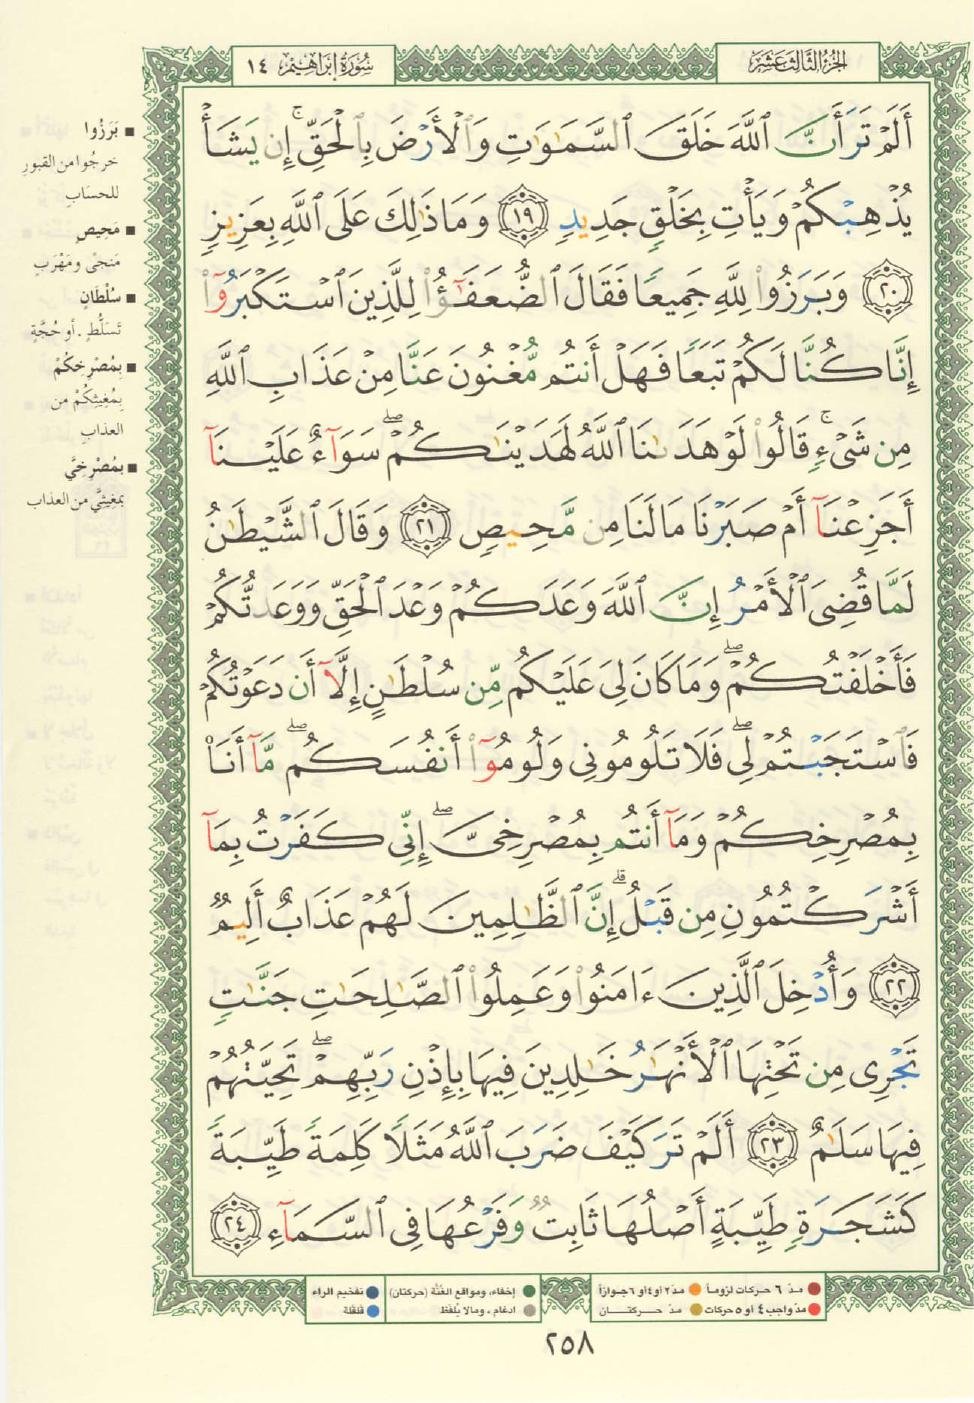 الجزء الثالث عشر
سورة إبراهيم ١٤
أَلَمْ تَرَ أَنَّ ٱللَّهَ خَلَقَ ٱلسَّمَٰوَٰتِ وَٱلْأَرْضَ بِٱلْحَقِّ ۚ إِن يَشَأْ
يُذْهِبْكُمْ وَيَأْتِ بِخَلْقٍ جَدِيدٍ ١٩ وَمَا ذَٰلِكَ عَلَى ٱللَّهِ بِعَزِيزٍ
٢٠ وَبَرَزُوا۟ لِلَّهِ جَمِيعًا فَقَالَ ٱلضُّعَفَٰٓؤُا۟ لِلَّذِينَ ٱسْتَكْبَرُوٓا۟
إِنَّا كُنَّا لَكُمْ تَبَعًا فَهَلْ أَنتُم مُّغْنُونَ عَنَّا مِنْ عَذَابِ ٱللَّهِ
مِن شَىْءٍ ۚ قَالُوا۟ لَوْ هَدَىٰنَا ٱللَّهُ لَهَدَيْنَٰكُمْ ۖ سَوَآءٌ عَلَيْنَآ
أَجَزِعْنَآ أَمْ صَبَرْنَا مَا لَنَا مِن مَّحِيصٍ ٢١ وَقَالَ ٱلشَّيْطَٰنُ
لَمَّا قُضِىَ ٱلْأَمْرُ إِنَّ ٱللَّهَ وَعَدَكُمْ وَعْدَ ٱلْحَقِّ وَوَعَدتُّكُمْ
فَأَخْلَفْتُكُمْ ۖ وَمَا كَانَ لِىَ عَلَيْكُم مِّن سُلْطَٰنٍ إِلَّآ أَن دَعَوْتُكُمْ
فَٱسْتَجَبْتُمْ لِى ۖ فَلَا تَلُومُونِى وَلُومُوٓا۟ أَنفُسَكُم ۖ مَّآ أَنَا۠
بِمُصْرِخِكُمْ وَمَآ أَنتُم بِمُصْرِخِىَّ ۖ إِنِّى كَفَرْتُ بِمَآ
أَشْرَكْتُمُونِ مِن قَبْلُ ۗ إِنَّ ٱلظَّٰلِمِينَ لَهُمْ عَذَابٌ أَلِيمٌ
٢٢ وَأُدْخِلَ ٱلَّذِينَ ءَامَنُوا۟ وَعَمِلُوا۟ ٱلصَّٰلِحَٰتِ جَنَّٰتٍ
تَجْرِى مِن تَحْتِهَا ٱلْأَنْهَٰرُ خَٰلِدِينَ فِيهَا بِإِذْنِ رَبِّهِمْ ۖ تَحِيَّتُهُمْ
فِيهَا سَلَٰمٌ ٢٣ أَلَمْ تَرَ كَيْفَ ضَرَبَ ٱللَّهُ مَثَلًا كَلِمَةً طَيِّبَةً
كَشَجَرَةٍ طَيِّبَةٍ أَصْلُهَا ثَابِتٌ وَفَرْعُهَا فِى ٱلسَّمَآءِ ٢٤
■ بَرَزُوا
خرجُوا من القبورِ
للحسَابِ
■ مَحِيصٍ
مَنجىً ومَهْرَبٍ
■ سُلْطَانٍ
تَسَلُّطٍ . أو حُجَّةٍ
■ بمُصْرِخكُمْ
بِمُغيثِكُمْ من
العذابِ
■ بمُصْرِخيَّ
بمغيثيَّ من العذاب
مدّ ٦ حركات لزوماً ● مدّ ٢ أو ٤ أو ٦ جوازاً
مدّ واجب ٤ أو ٥ حركات ● مدّ حركتان
إخفاء، ومواقع الغُنَّة (حركتان) ● تفخيم الراء
ادغام ، ومالا يُلفَظ ● قلقلة
٢٥٨